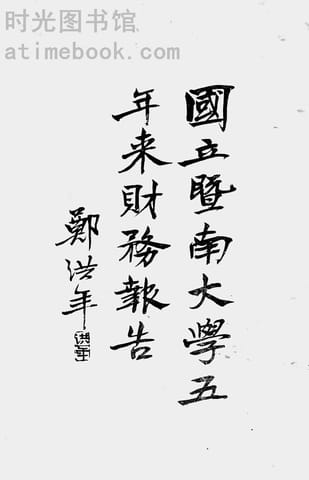 时光图书馆
atimebook.com
國立暨南大學五
年来財務報告
鄭洪年